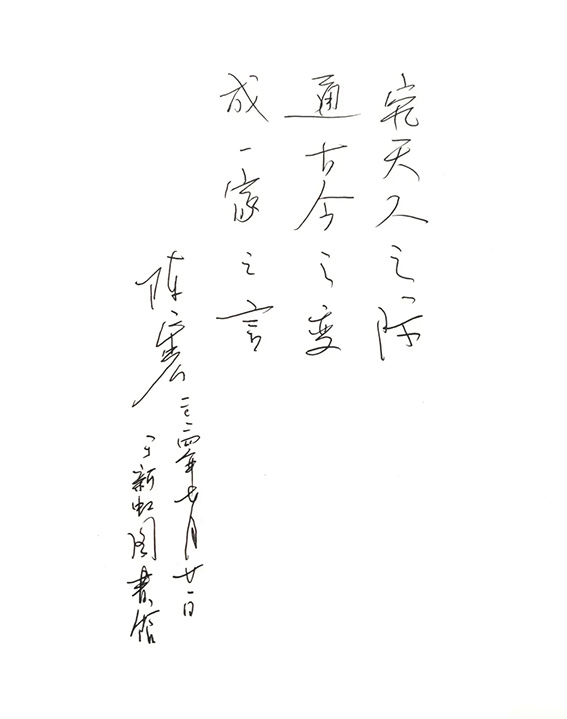 究天人之际
通古今之变
成一家之言
陈
二〇二四年七月廿一日
于新虹图书馆